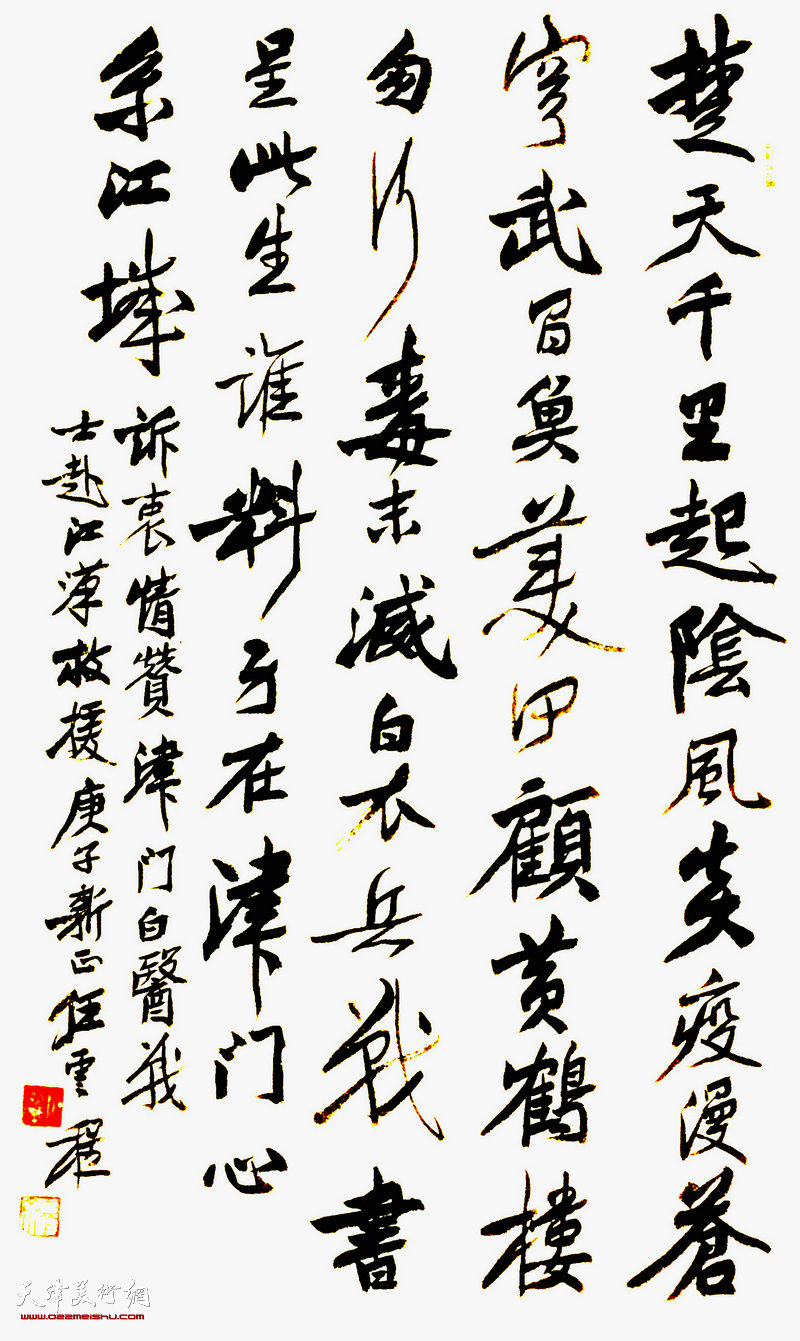 楚天千里起陰風炎疫漫蒼
穹武昌魚美甲顧黃鶴樓
匆行毒未減白衣兵戰書
呈此生誰料身在津門心
系江城
訴衷情贊津門白醫戰
士赴江漢救援庚子新正任雲程
天津美術網
www.022meishu.com